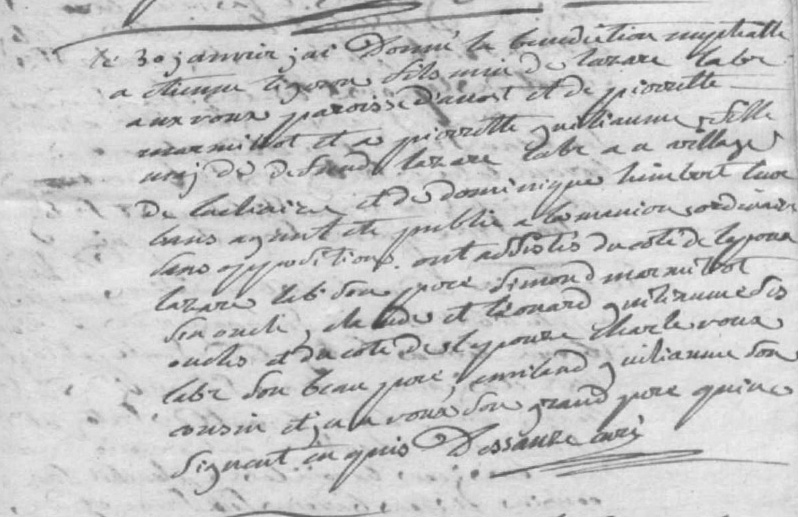 Le 30 janvier j'ai Donné la benediction nuptialle
a etienne fils min de lazare labr
aux roux paroisse d'anost et de pierrette
marmillot et a pierrette guillaume fille
min de defunt lazare labr au village
de et de dominique himbert leur
bans ayant ete publié a la maniere ordinaire
sans opposition ont assistés du coté de lepoux
lazare labr son pere Simond marmillot
son oncle, claude et léonard guillaume ses
oncles et du coté de lepouse charle roux
labr son beau pere, emiland guillaume son
cousin et jean roux son grand pere qui ne
signent enquis Dessauze curé